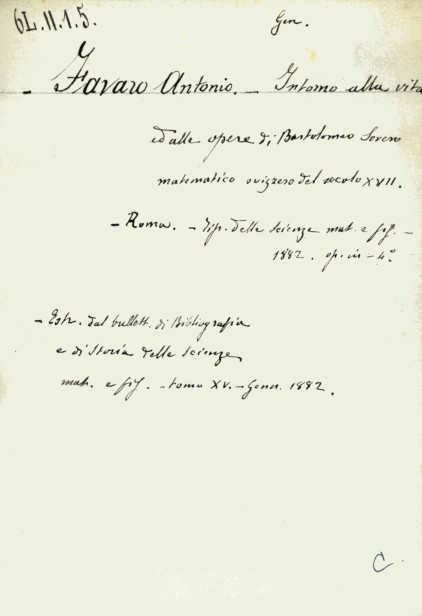 6L.II.1.5.
Gen.
- Favaro Antonio. - Intorno alla vita
ed alle opere di Bartolomeo Sovero
matematico svizzero del secolo XVII.
- Roma. - Tip. delle scienze mat. e fis. -
1882. op. in - 4.º
- Estr. dal bullett. di Bibliografia
e di Storia delle scienze
mat. e fis. - tomo XV. - Genn. 1882.
C